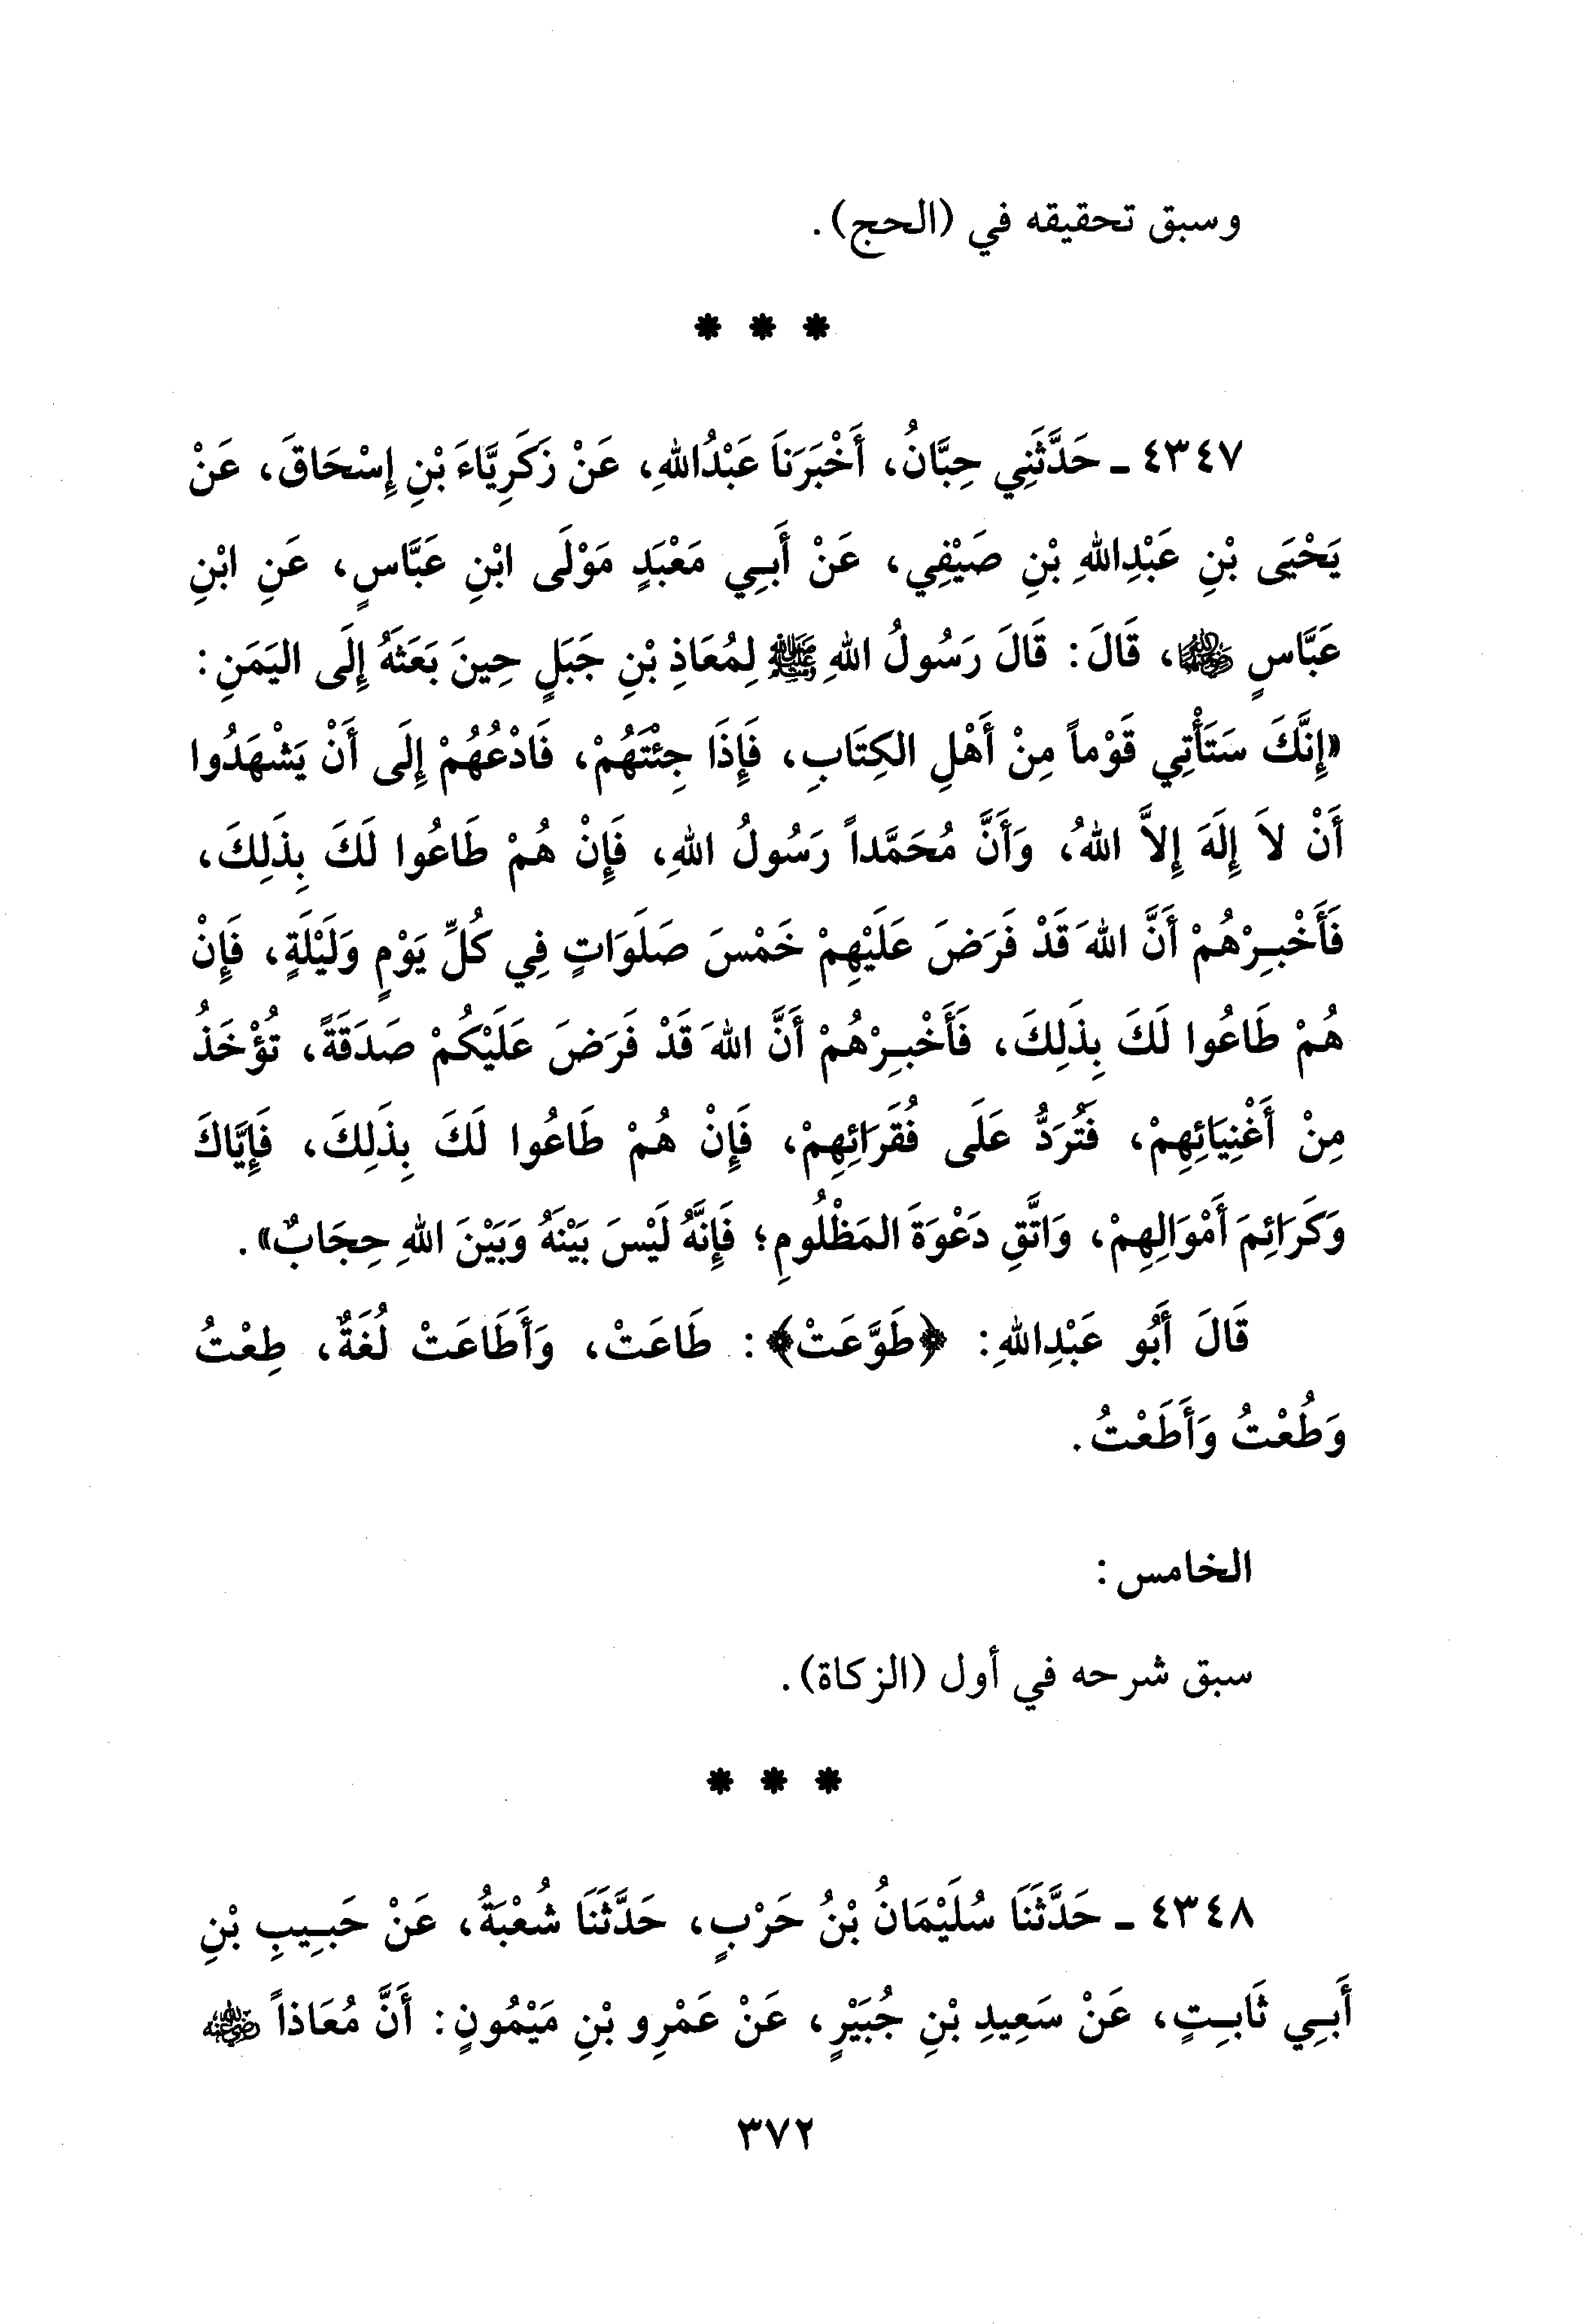 وسبق تحقيقه في (الحج).
* * *
٤٣٤٧ ـ حَدَّثَنِي حِبَّانُ، أَخْبَرَنَا عَبْدُاللهِ، عَنْ زَكَرِيَّاءَ بْنِ إِسْحَاقَ، عَنْ
يَحْيَى بْنِ عَبْدِاللهِ بْنِ صَيْفِي، عَنْ أَبِي مَعْبَدٍ مَوْلَى ابْنِ عَبَّاسٍ، عَنِ ابْنِ
عَبَّاسٍ ﵄، قَالَ: قَالَ رَسُولُ اللهِ ﷺ لِمُعَاذِ بْنِ جَبَلٍ حِينَ بَعَثَهُ إِلَى اليَمَنِ:
«إِنَّكَ سَتَأْتِي قَوْماً مِنْ أَهْلِ الكِتَابِ، فَإِذَا جِئْتَهُمْ، فَادْعُهُمْ إِلَى أَنْ يَشْهَدُوا
أَنْ لاَ إِلَهَ إِلاَّ اللهُ، وَأَنَّ مُحَمَّداً رَسُولُ اللهِ، فَإِنْ هُمْ طَاعُوا لَكَ بِذَلِكَ،
فَأَخْبِرْهُمْ أَنَّ اللهَ قَدْ فَرَضَ عَلَيْهِمْ خَمْسَ صَلَوَاتٍ فِي كُلِّ يَوْمٍ وَلَيْلَةٍ، فَإِنْ
هُمْ طَاعُوا لَكَ بِذَلِكَ، فَأَخْبِرْهُمْ أَنَّ اللهَ قَدْ فَرَضَ عَلَيْكُمْ صَدَقَةً، تُؤْخَذُ
مِنْ أَغْنِيَائِهِمْ، فَتُرَدُّ عَلَى فُقَرَائِهِمْ، فَإِنْ هُمْ طَاعُوا لَكَ بِذَلِكَ، فَإِيَّاكَ
وَكَرَائِمَ أَمْوَالِهِمْ، وَاتَّقِ دَعْوَةَ المَظْلُومِ؛ فَإِنَّهُ لَيْسَ بَيْنَهُ وَبَيْنَ اللهِ حِجَابٌ».
قَالَ أَبُو عَبْدِاللهِ: ﴿طَوَّعَتْ﴾: طَاعَتْ، وَأَطَاعَتْ لُغَةٌ، طِعْتُ
وَطُعْتُ وَأَطَعْتُ.
الخامس:
سبق شرحه في أول (الزكاة).
* * *
٤٣٤٨ ـ حَدَّثَنَا سُلَيْمَانُ بْنُ حَرْبٍ، حَدَّثَنَا شُعْبَةُ، عَنْ حَبِيبِ بْنِ
أَبِي ثَابِتٍ، عَنْ سَعِيدِ بْنِ جُبَيْرٍ، عَنْ عَمْرِو بْنِ مَيْمُونٍ: أَنَّ مُعَاذاً ﵁
٣٧٢